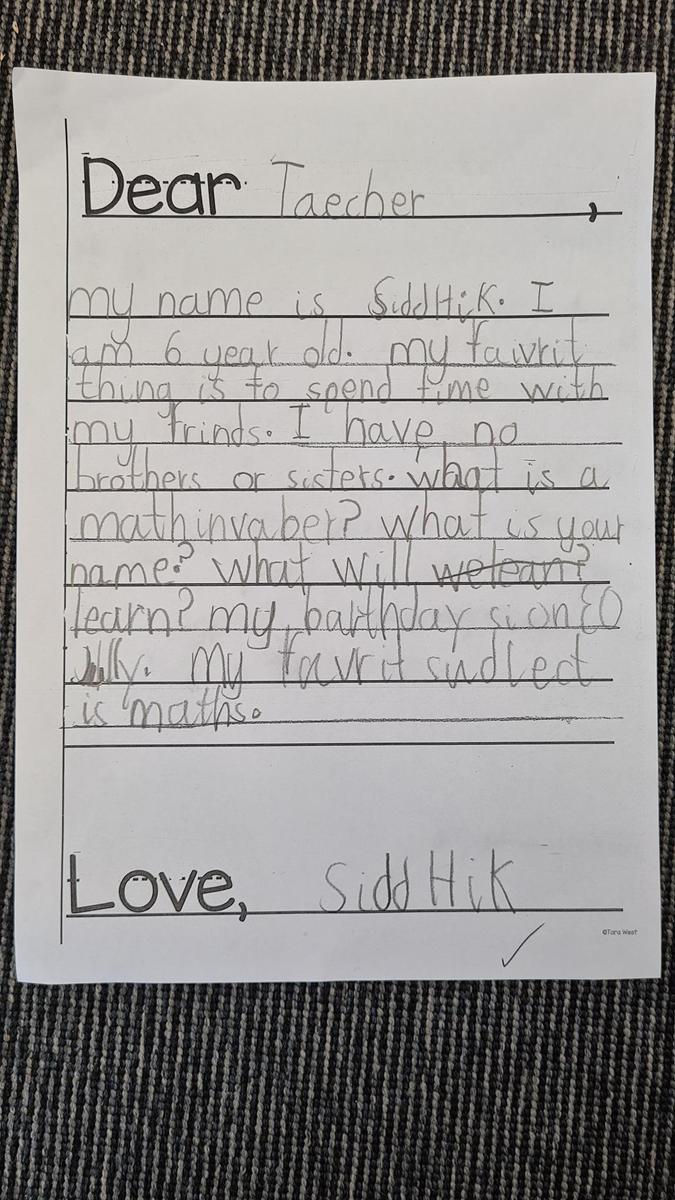 Dear Taecher,
my name is SiddHiK. I
am 6 year old. my faivrit
thing is to spend time with
my frinds. I have no
brothers or sisters. what is a
mathinvaber? what is your
name? what will welearn?
learn? my barthday si on
July. my favrit sudlect
is maths.
Love, SiddHiK
©Tara West